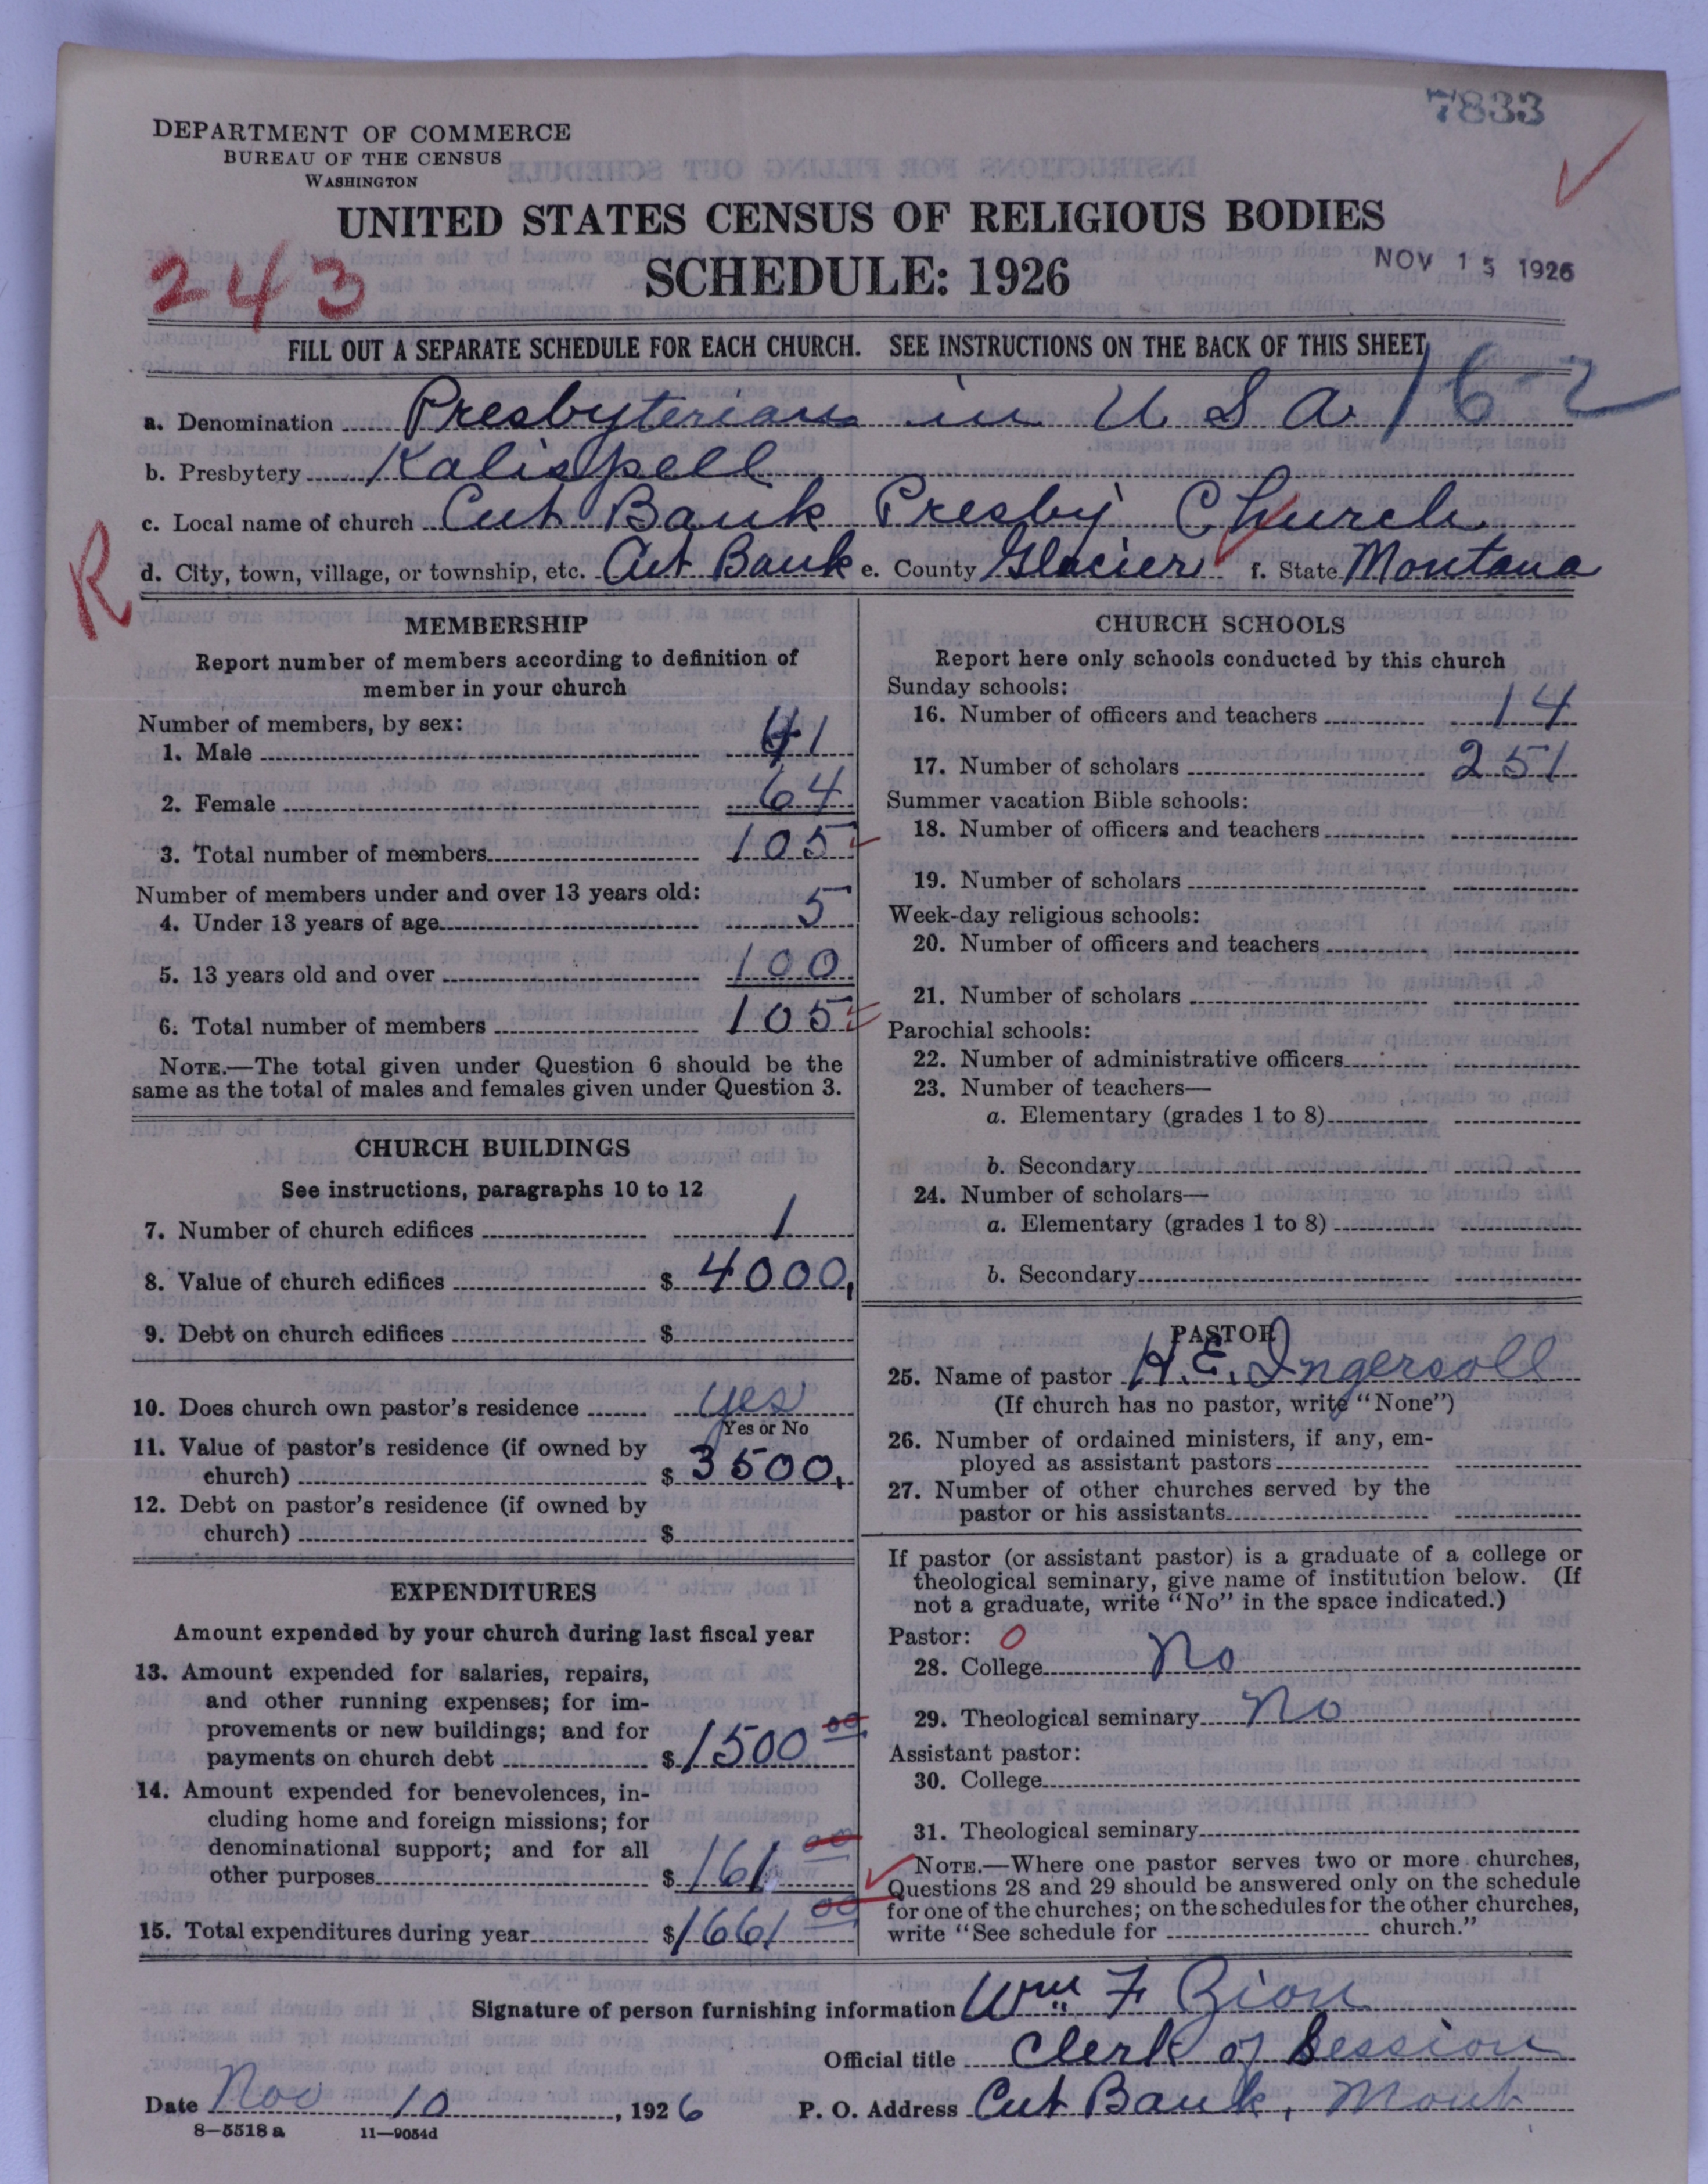 7833
DEPARTMENT OF COMMERCE
BUREAU OF THE CENSUS
WASHINGTON
UNITED STATES CENSUS OF RELIGIOUS BODIES
243
SCHEDULE: 1926
NOV 15 1926
FILL OUT A SEPARATE SCHEDULE FOR EACH CHURCH. SEE INSTRUCTIONS ON THE BACK OF THIS SHEET
16-2
a. Denomination Presbyterian in U S A
b. Presbytery Kalispell
c. Local name of church Cut Bank Presby Church
R
d. City, town, village, or township, etc. Cut Bank e. County Glacier f. State Montana
MEMBERSHIP
Report number of members according to definition of
member in your church
Number of members, by sex:
1. Male 41
2. Female 64
3. Total number of members 105
Number of members under and over 13 years old:
4. Under 13 years of age 5
5. 13 years old and over 100
6. Total number of members 105
NOTE.—The total given under Question 6 should be the
same as the total of males and females given under Question 3.
CHURCH BUILDINGS
See instructions, paragraphs 10 to 12
7. Number of church edifices 1
8. Value of church edifices $ 4000,
9. Debt on church edifices $
10. Does church own pastor's residence yes
Yes or No
11. Value of pastor's residence (if owned by
church) $ 3500,
12. Debt on pastor's residence (if owned by
church) $
EXPENDITURES
Amount expended by your church during last fiscal year
13. Amount expended for salaries, repairs,
and other running expenses; for im-
provements or new buildings; and for
payments on church debt $ 1500 00
14. Amount expended for benevolences, in-
cluding home and foreign missions; for
denominational support; and for all
other purposes $ 161 00
15. Total expenditures during year $ 1661 00
CHURCH SCHOOLS
Report here only schools conducted by this church
Sunday schools:
16. Number of officers and teachers 14
17. Number of scholars 251
Summer vacation Bible schools:
18. Number of officers and teachers
19. Number of scholars
Week-day religious schools:
20. Number of officers and teachers
21. Number of scholars
Parochial schools:
22. Number of administrative officers
23. Number of teachers—
a. Elementary (grades 1 to 8)
b. Secondary
24. Number of scholars—
a. Elementary (grades 1 to 8)
b. Secondary
PASTOR
25. Name of pastor H. E. Ingersoll
(If church has no pastor, write "None")
26. Number of ordained ministers, if any, em-
ployed as assistant pastors
27. Number of other churches served by the
pastor or his assistants
If pastor (or assistant pastor) is a graduate of a college or
theological seminary, give name of institution below. (If
not a graduate, write "No" in the space indicated.)
Pastor: 0
28. College No
29. Theological seminary No
Assistant pastor:
30. College
31. Theological seminary
NOTE.—Where one pastor serves two or more churches,
Questions 28 and 29 should be answered only on the schedule
for one of the churches; on the schedules for the other churches,
write "See schedule for church."
Signature of person furnishing information Wm F Zion
Official title Clerk of Session
Date Nov 10, 1926 P. O. Address Cut Bank, Mont
8-5518 a 11-9054d